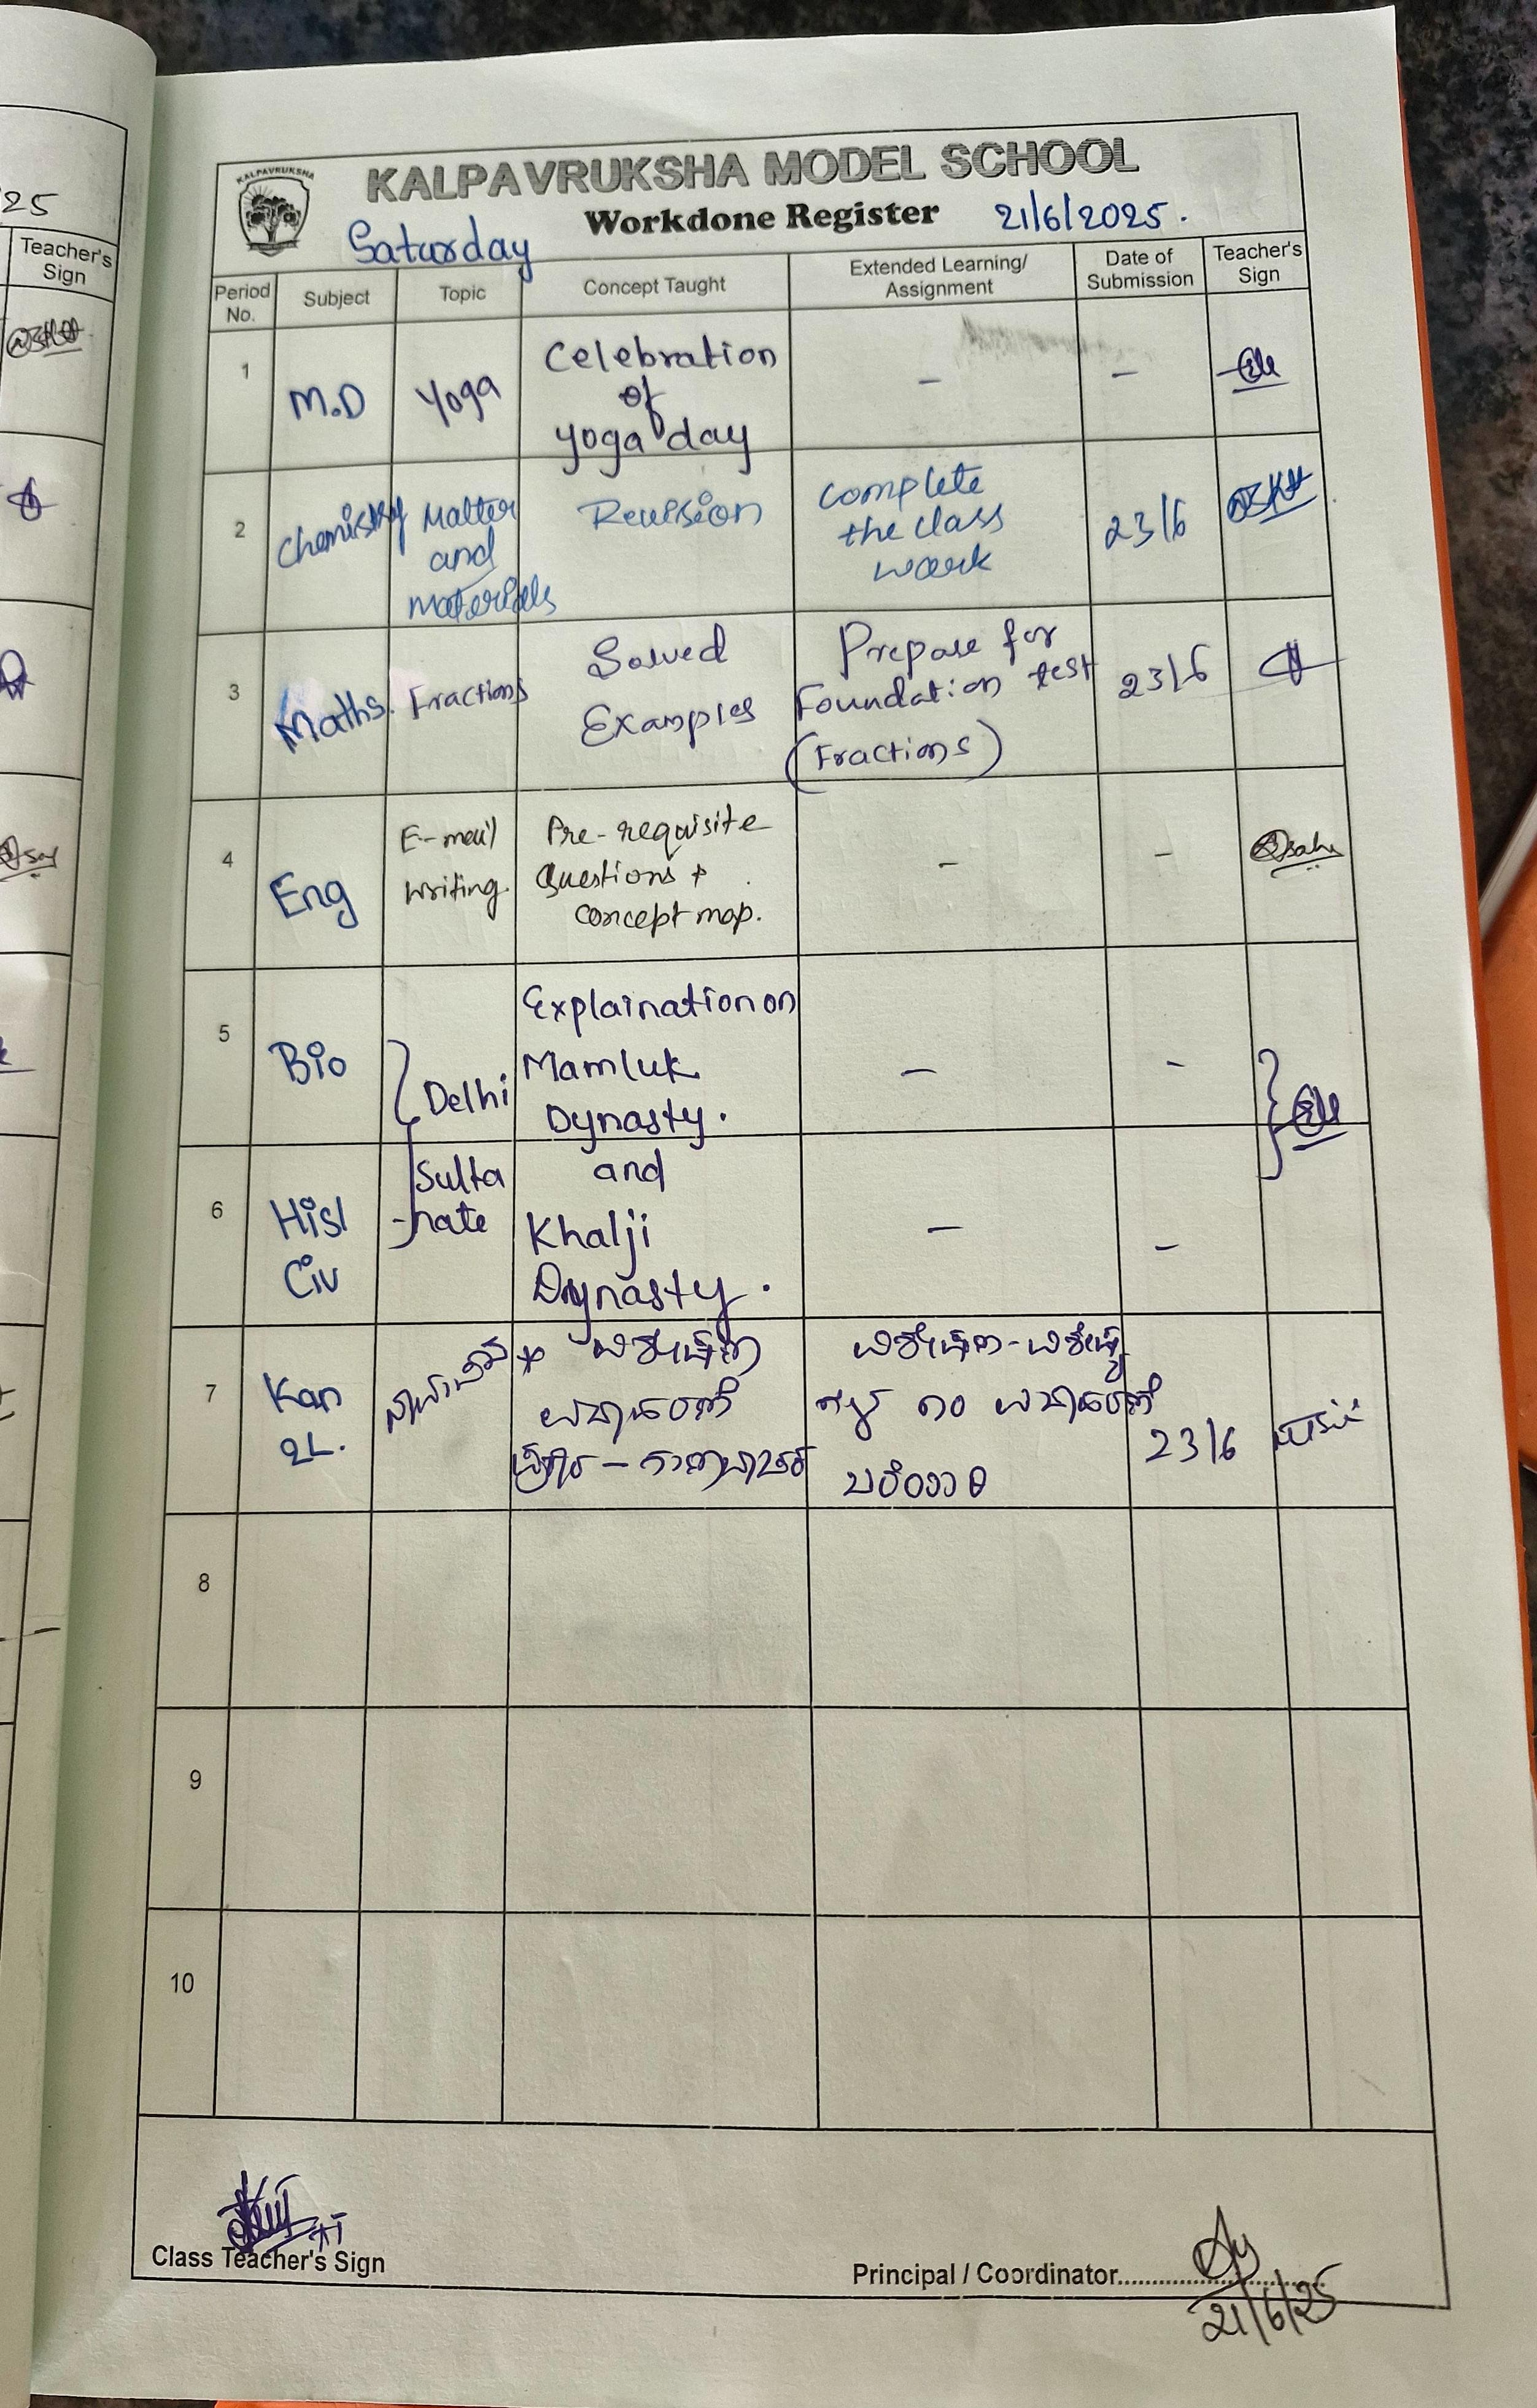 25
Teacher's
Sign
KALPAVRUKSHA
KALPAVRUKSHA MODEL SCHOOL
Workdone Register 21/6/2025.
Saturday
Period No. Subject Topic Concept Taught Extended Learning/ Assignment Date of Submission Teacher's Sign
1 M.D Yoga Celebration of yoga day - -
2 Chemistry Matter and materials Revision complete the class work 23/6
3 Maths. Fractions Solved Examples Prepare for Foundation test (Fractions) 23/6
4 Eng E-mail writing. Pre-requisite Questions + concept map. - -
5 Bio Delhi Explaination on Mamluk Dynasty. - -
6 His/ Civ Sulta -nate and Khalji Dynasty. - -
7 Kan 2L. 23/6
8
9
10
Class Teacher's Sign
Principal / Coordinator
21/6/25